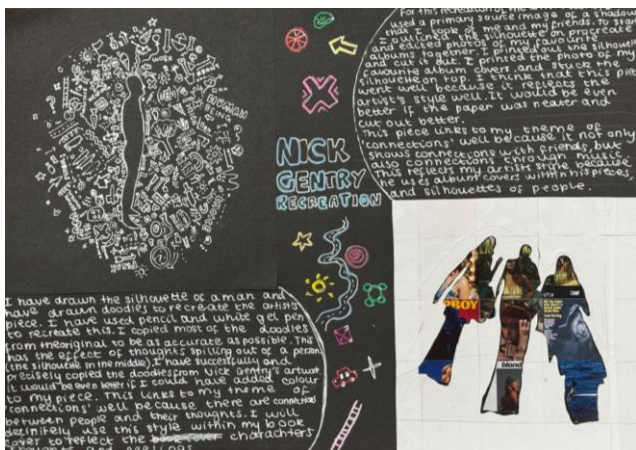 For this recreation of the
used a primary source image of a shadow
that I took of me and my friends. To start
I outlined the silhouette on procreate
and edited photos of my favourite
albums together. I printed out the silhouette
and cut it out. I printed the photo of my
favourite album covers and stuck the
silhouette on top. I think that this piece
went well because it repeats the
artist's style well. It would be even
better if the paper was neater and
cut out better.
This piece links to my theme of
'connections' well because it not only
shows connections with friends, but
also connections through music.
This reflects my artists style because
he uses album covers within his pieces,
and silhouettes of people.
WORK
HUMAN
BEING
NICK
GENTRY
RECREATION
I have drawn the silhouette of a man and
have drawn doodles to recreate the artists
piece. I have used pencil and white gel pen
to recreate this. I copied most of the doodles
from the original to be as accurate as possible. This
has the effect of thoughts spilling out of a person
(the silhouette in the middle). I have successfully and
precisely copied the doodles from Nick Gentry's artwork
it would be even better if I could have added colour
to my piece. This links to my theme of
'connections' well because there are connections
between people and their thoughts. I will
definitely use this style within my book
cover to reflect the characters
thoughts and feelings.
PBOY
blond